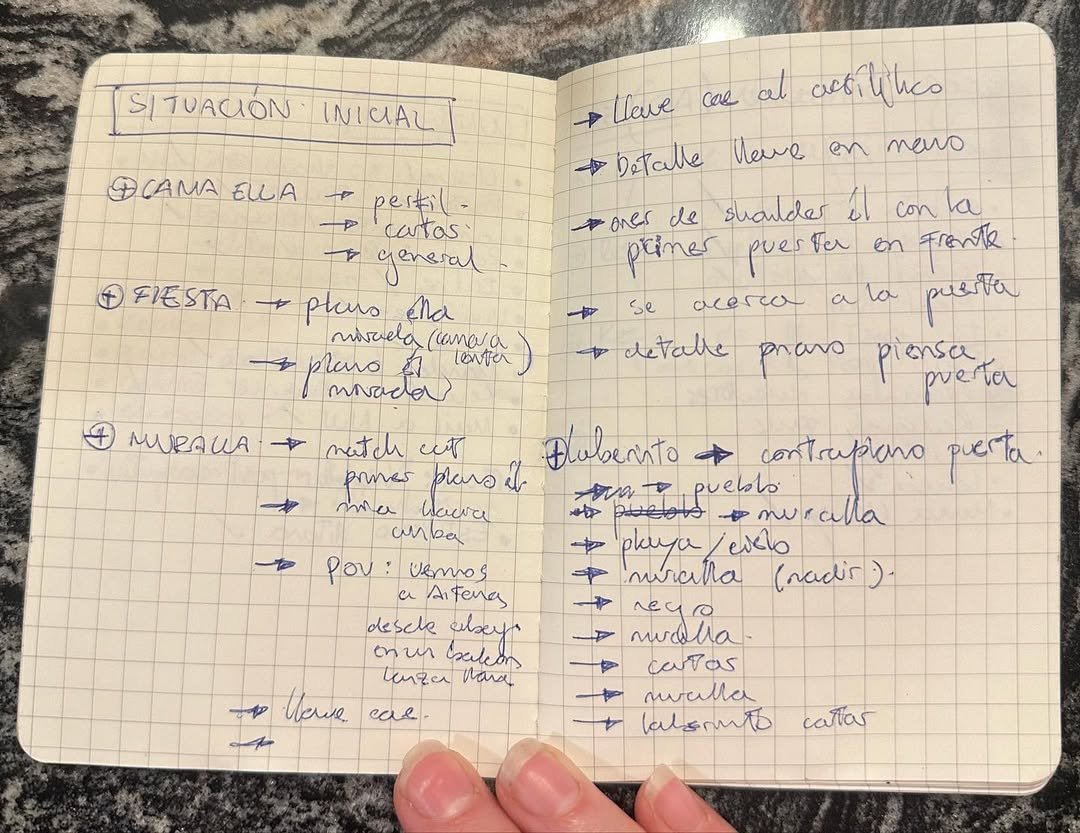 SITUACIÓN INICIAL
⊕ CAMA ELLA → perfil -
→ cartas.
→ general -
⊕ FIESTA → plano ella
mirada (camara
lenta)
→ plano él
mirada
⊕ MURALLA → match cut
primer plano él.
→ mira hacia
arriba
→ POV: vemos
a
desde abajo
en un balcón
lanza llave
→ llave cae.
→
→ llave cae al
→ Detalle llave en mano
→ over de shoulder él con la
primer puerta en frente.
→ se acerca a la puerta
→ detalle mano piensa
puerta
⊕ laberinto → contraplano puerta.
→ pueblo
→ pueblo → muralla
→ playa / cielo
→ muralla (nadir).
→ negro
→ muralla.
→ cartas
→ muralla
→ laberinto cartas